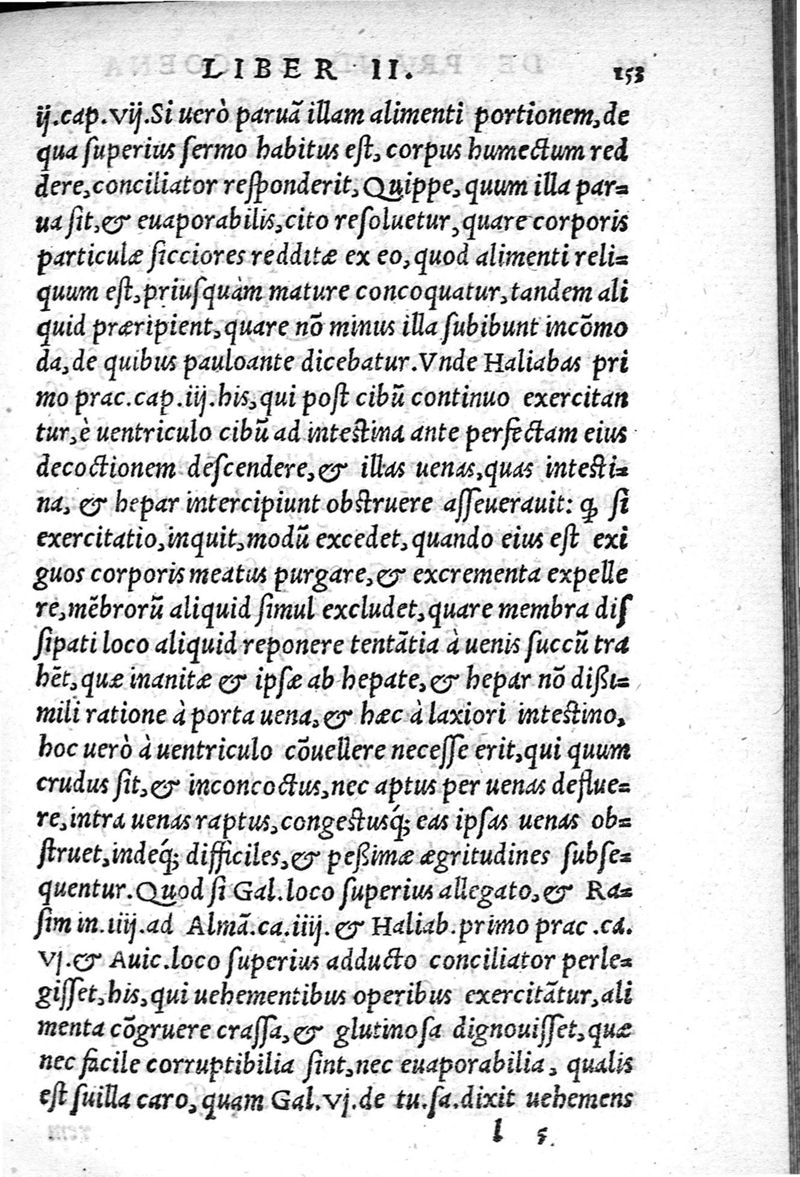 LIBER II. 153
ij.cap.vij.Si uerò paruā illam alimenti portionem,de
qua superius sermo habitus est, corpus humectum red
dere,conciliator responderit, Quippe, quum illa par=
ua sit,& euaporabilis,cito resoluetur,quare corporis
particulæ sicciores redditæ ex eo, quod alimenti reli=
quum est,priusquàm mature concoquatur,tandem ali
quid præripient,quare nō minus illa subibunt incōmo
da,de quibus pauloante dicebatur.Vnde Haliabas pri
mo prac.cap.iij.his,qui post cibū continuo exercitan
tur,è uentriculo cibū ad intestina ante perfectam eius
decoctionem descendere,& illas uenas,quas intesti=
na, & hepar intercipiunt obstruere asseuerauit: ꝙ si
exercitatio,inquit,modū excedet,quando eius est exi
guos corporis meatus purgare,& excrementa expelle
re,mēbrorū aliquid simul excludet,quare membra dis
sipati loco aliquid reponere tentātia à uenis succū tra
hēt,quæ inanitæ & ipsæ ab hepate,& hepar nō dißi=
mili ratione à porta uena,& hæc à laxiori intestino,
hoc uerò à uentriculo cōuellere necesse erit,qui quum
crudus sit,& inconcoctus,nec aptus per uenas deflue=
re,intra uenas raptus,congestusq́; eas ipsas uenas ob=
struet,indeq́; difficiles,& peßimæ ægritudines subse=
quentur.Quod si Gal.loco superius allegato,& Ra=
sim in.iiij.ad Almā.ca.iiij.& Haliab.primo prac.ca.
vj.& Auic.loco superius adducto conciliator perle=
gisset,his,qui uehementibus operibus exercitātur,ali
menta cōgruere crassa,& glutinosa dignouisset,quæ
nec facile corruptibilia sint,nec euaporabilia, qualis
est suilla caro,quam Gal.vj.de tu.sa.dixit uehemens
l 5.